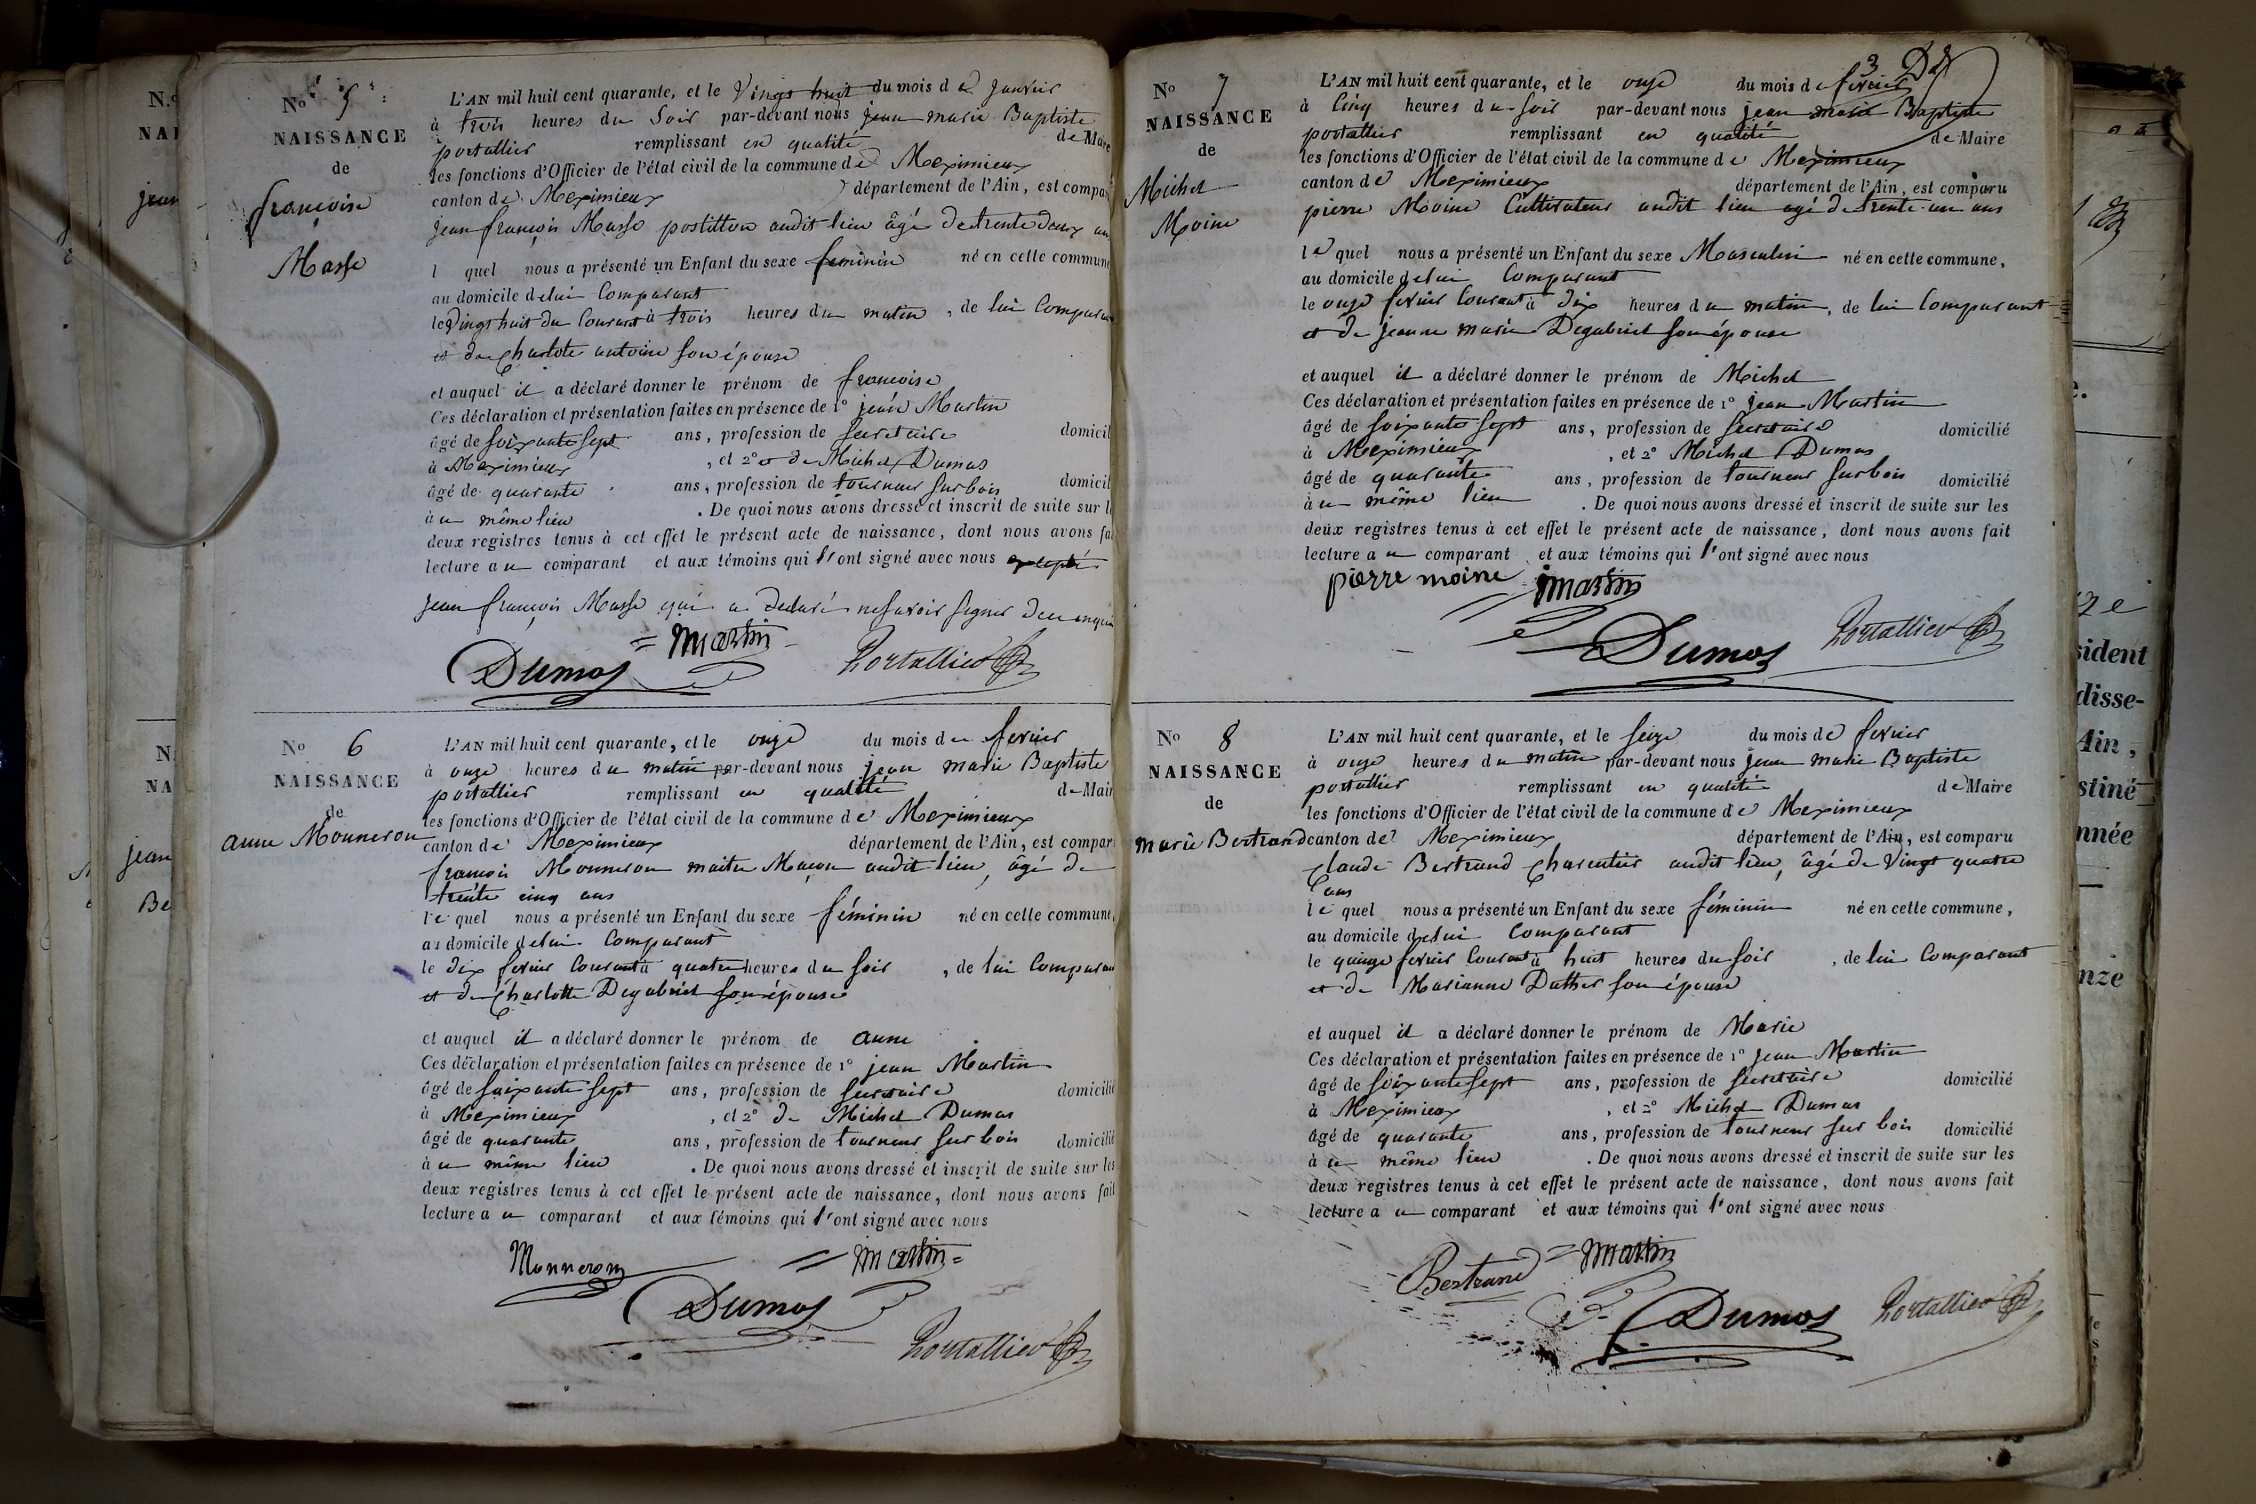 No 5
NAISSANCE
de
françoise
Masse
L'AN mil huit cent quarante, et le Vingt huit du mois de Janvier
à trois heures du Soir par-devant nous jean marie Baptiste
portallier remplissant en qualité de Maire
les fonctions d'Officier de l'état civil de la commune de Meximieux
canton de Meximieux département de l'Ain, est compar
jean françois Masse postillon audit lieu âgé de trente deux ans
l quel nous a présenté un Enfant du sexe feminin né en cette commune
au domicile de lui Comparant
le Vingt huit du Courant à trois heures du matin, de lui Comparant
et de Charlote antoine son épouse
et auquel il a déclaré donner le prénom de françoise
Ces déclaration et présentation faites en présence de 1º jean Martin
âgé de soixante sept ans, profession de secretaire domicil
à Meximieux, et 2º et de Michel Dumas
âgé de quarante ans, profession de tourneur sur bois domicil
à u même lieu . De quoi nous avons dressé et inscrit de suite sur l
deux registres tenus à cet effet le présent acte de naissance, dont nous avons fa
lecture a u comparant et aux témoins qui l'ont signé avec nous excepté
jean françois Masse qui a declaré ne savoir signer de ce enquis
martin
Dumas Portallier
No 6
NAISSANCE
de
anne Monneron
L'AN mil huit cent quarante, et le onze du mois de fevrier
à onze heures du matin par-devant nous jean marie Baptiste
portallier remplissant en qualité de Mair
les fonctions d'Officier de l'état civil de la commune de Meximieux
canton de Meximieux département de l'Ain, est compar
françois Monneron maitre Maçon audit lieu, âgé de
trente cinq ans
le quel nous a présenté un Enfant du sexe féminin né en cette commune,
au domicile de lui Comparant
le dix fevrier Courant à quatre heures du soir, de lui Comparant
et de Charlotte Degabriel son épouse
et auquel il a déclaré donner le prénom de anne
Ces déclaration et présentation faites en présence de 1º jean Martin
âgé de soixante sept ans, profession de secretaire domicilié
à Meximieux, et 2º de Michel Dumas
âgé de quarante ans, profession de tourneur sur bois domicilié
à u même lieu . De quoi nous avons dressé et inscrit de suite sur les
deux registres tenus à cet effet le présent acte de naissance, dont nous avons fait
lecture a u comparant et aux témoins qui l'ont signé avec nous
Monneron martin
Dumas
Portallier
3
No 7
NAISSANCE
de
Michel
Moine
L'AN mil huit cent quarante, et le onze du mois de fevrier
à Cinq heures du soir par-devant nous jean marie Baptiste
portallier remplissant en qualité de Maire
les fonctions d'Officier de l'état civil de la commune de Meximieux
canton de Meximieux département de l'Ain, est comparu
pierre Moine Cultivateur audit lieu agé de trente un ans
le quel nous a présenté un Enfant du sexe Masculin né en cette commune,
au domicile de lui Comparant
le onze fevrier Courant à dix heures du matin, de lui Comparant
et de jeanne marie Degabriel son épouse
et auquel il a déclaré donner le prénom de Michel
Ces déclaration et présentation faites en présence de 1º jean Martin
âgé de soixante sept ans, profession de secretaire domicilié
à Meximieux, et 2º Michel Dumas
âgé de quarante ans, profession de tourneur sur bois domicilié
à u même lieu . De quoi nous avons dressé et inscrit de suite sur les
deux registres tenus à cet effet le présent acte de naissance, dont nous avons fait
lecture a u comparant et aux témoins qui l'ont signé avec nous
pierre moine martin
Dumas Portallier
No 8
NAISSANCE
de
marie Bertrand
L'AN mil huit cent quarante, et le seize du mois de fevrier
à onze heures du matin par-devant nous jean marie Baptiste
portallier remplissant en qualité de Maire
les fonctions d'Officier de l'état civil de la commune de Meximieux
canton de Meximieux département de l'Ain, est comparu
Claude Bertrand Charentier audit lieu, âgé de Vingt quatre
ans
le quel nous a présenté un Enfant du sexe féminin né en cette commune,
au domicile de lui Comparant
le quinze fevrier Courant à huit heures du soir, de lui Comparant
et de Marianne Duther son épouse
et auquel il a déclaré donner le prénom de Marie
Ces déclaration et présentation faites en présence de 1º jean Martin
âgé de soixante sept ans, profession de secretaire domicilié
à Meximieux, et 2º Michel Dumas
âgé de quarante ans, profession de tourneur sur bois domicilié
à u même lieu . De quoi nous avons dressé et inscrit de suite sur les
deux registres tenus à cet effet le présent acte de naissance, dont nous avons fait
lecture a u comparant et aux témoins qui l'ont signé avec nous
Bertrand martin
Dumas Portallier